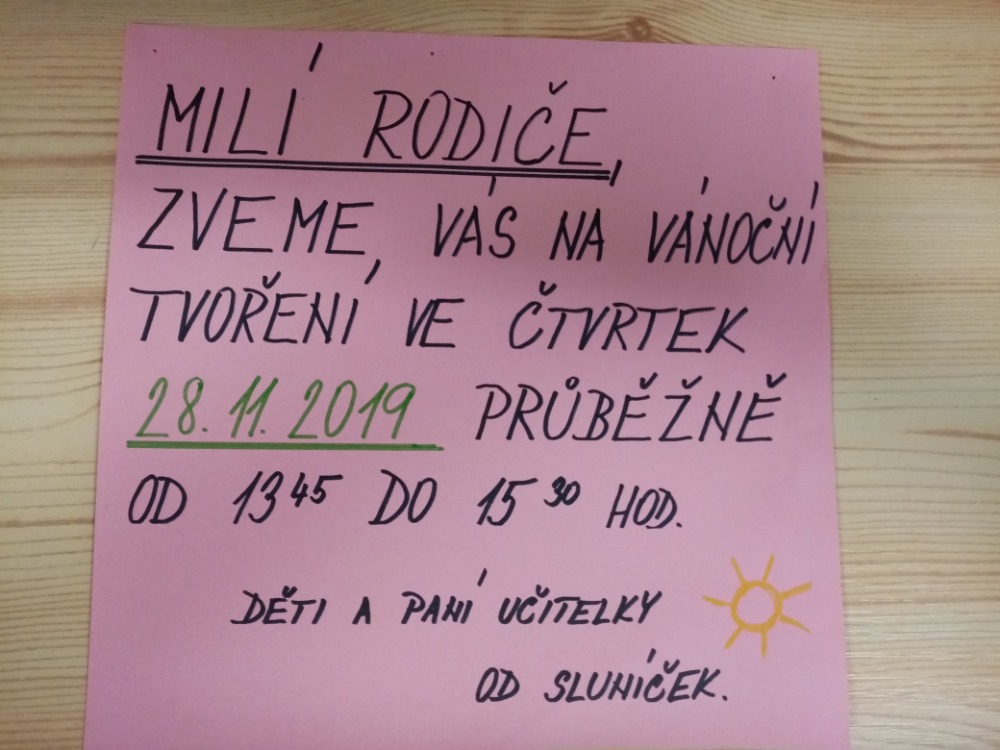 MILÍ RODIČE,
ZVEME, VÁS NA VÁNOČNÍ
TVOŘENÍ VE ČTVRTEK
28.11.2019 PRŮBĚŽNĚ
OD 13⁴⁵ DO 15³⁰ HOD.
DĚTI A PANÍ UČITELKY
OD SLUNÍČEK.